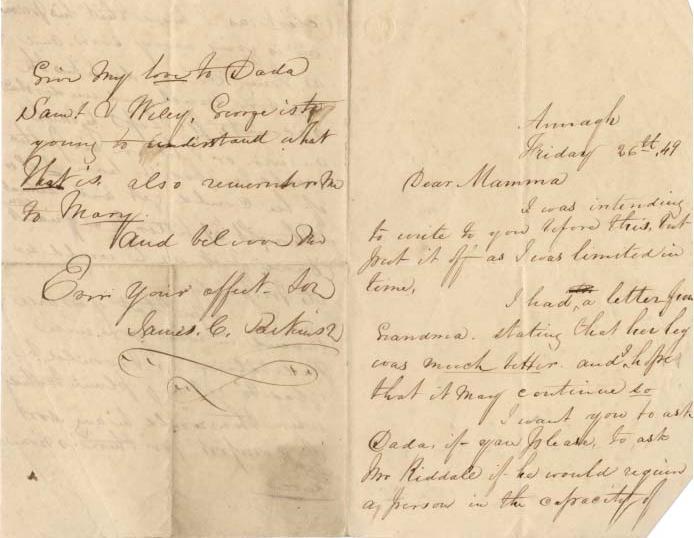 Annagh
Friday 26th, 49
Dear Mamma
I was intending
to write to you before this, but
put it off as I was limited in
time,
I had a letter from
Grandma. stating that her leg
was much better. and I hope
that it may continue so
I want you to ask
Dada, if you please, to ask
Mr Riddale if he would require
a, person in the capacity of
Give My love to Dada
Saml & Wiley, George is to
young to understand what
that is. also remember me
to Mary.
and believe Me
Ever Your affect. Son
James. C.